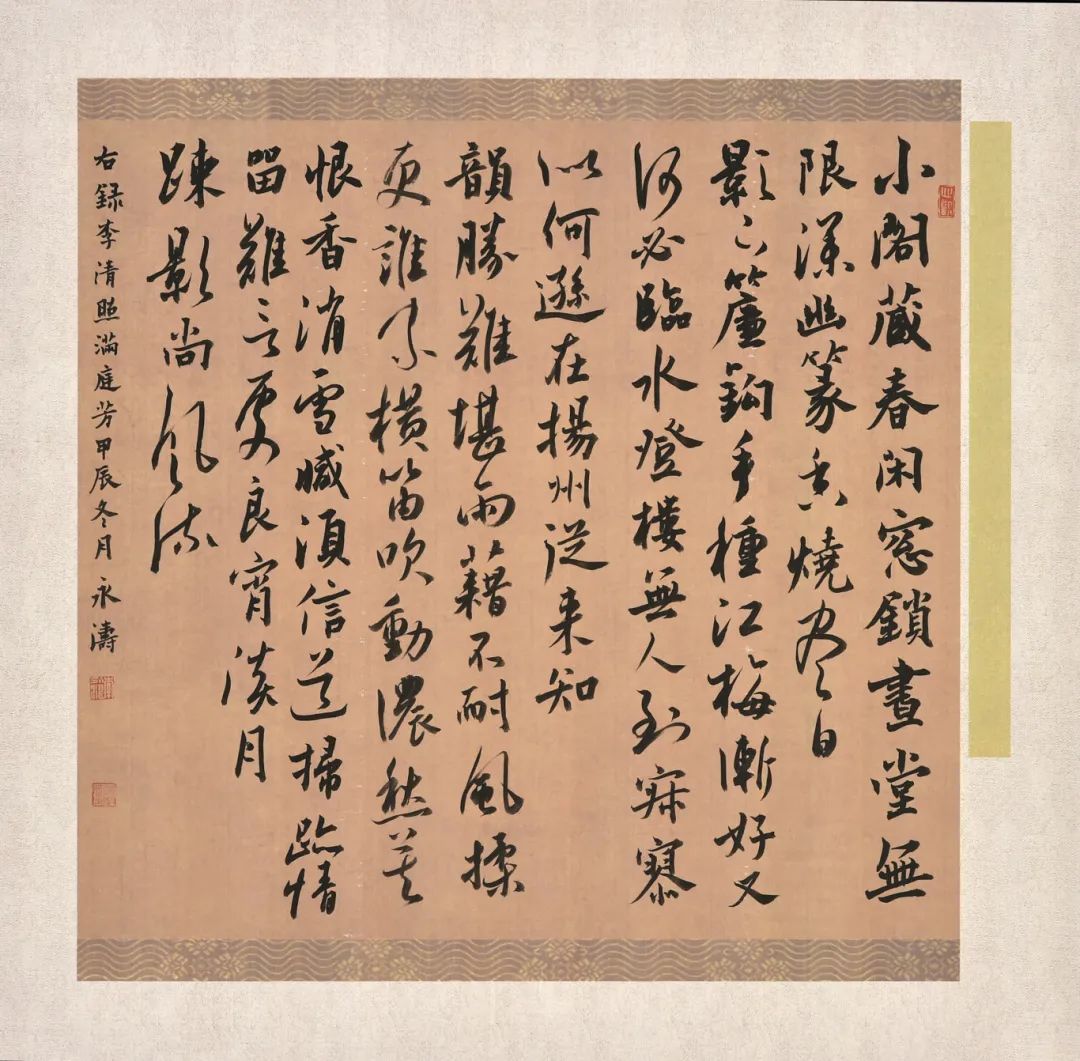 小閣藏春闲窓鎖晝堂無
限深幽篆香燒盡日
影下簾鈎手種江梅漸好又
何必臨水登樓無人到寂寥
似何遜在揚州從来知
韻勝難堪雨藉不耐風揉
更誰家横笛吹動濃愁莫
恨香消雪減須信道掃跡情
留難言處良宵淡月
踈影尚風流
右録李清照滿庭芳甲辰冬月永濤